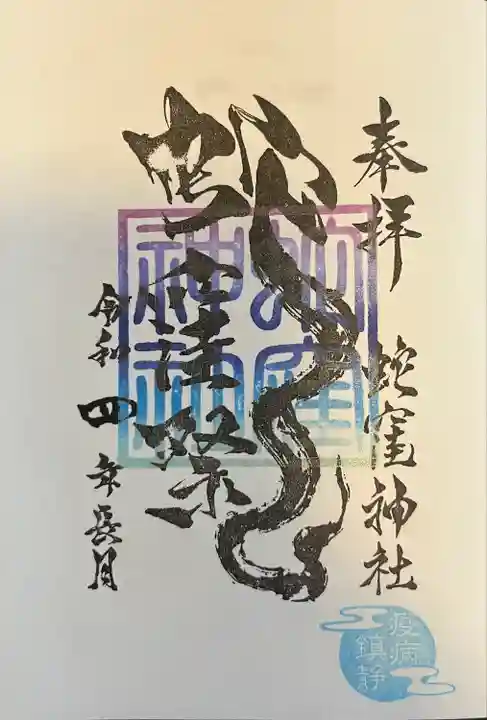 奉拝　蛇窪神社
蛇窪
神社
令和四年長月
疫病
鎮静